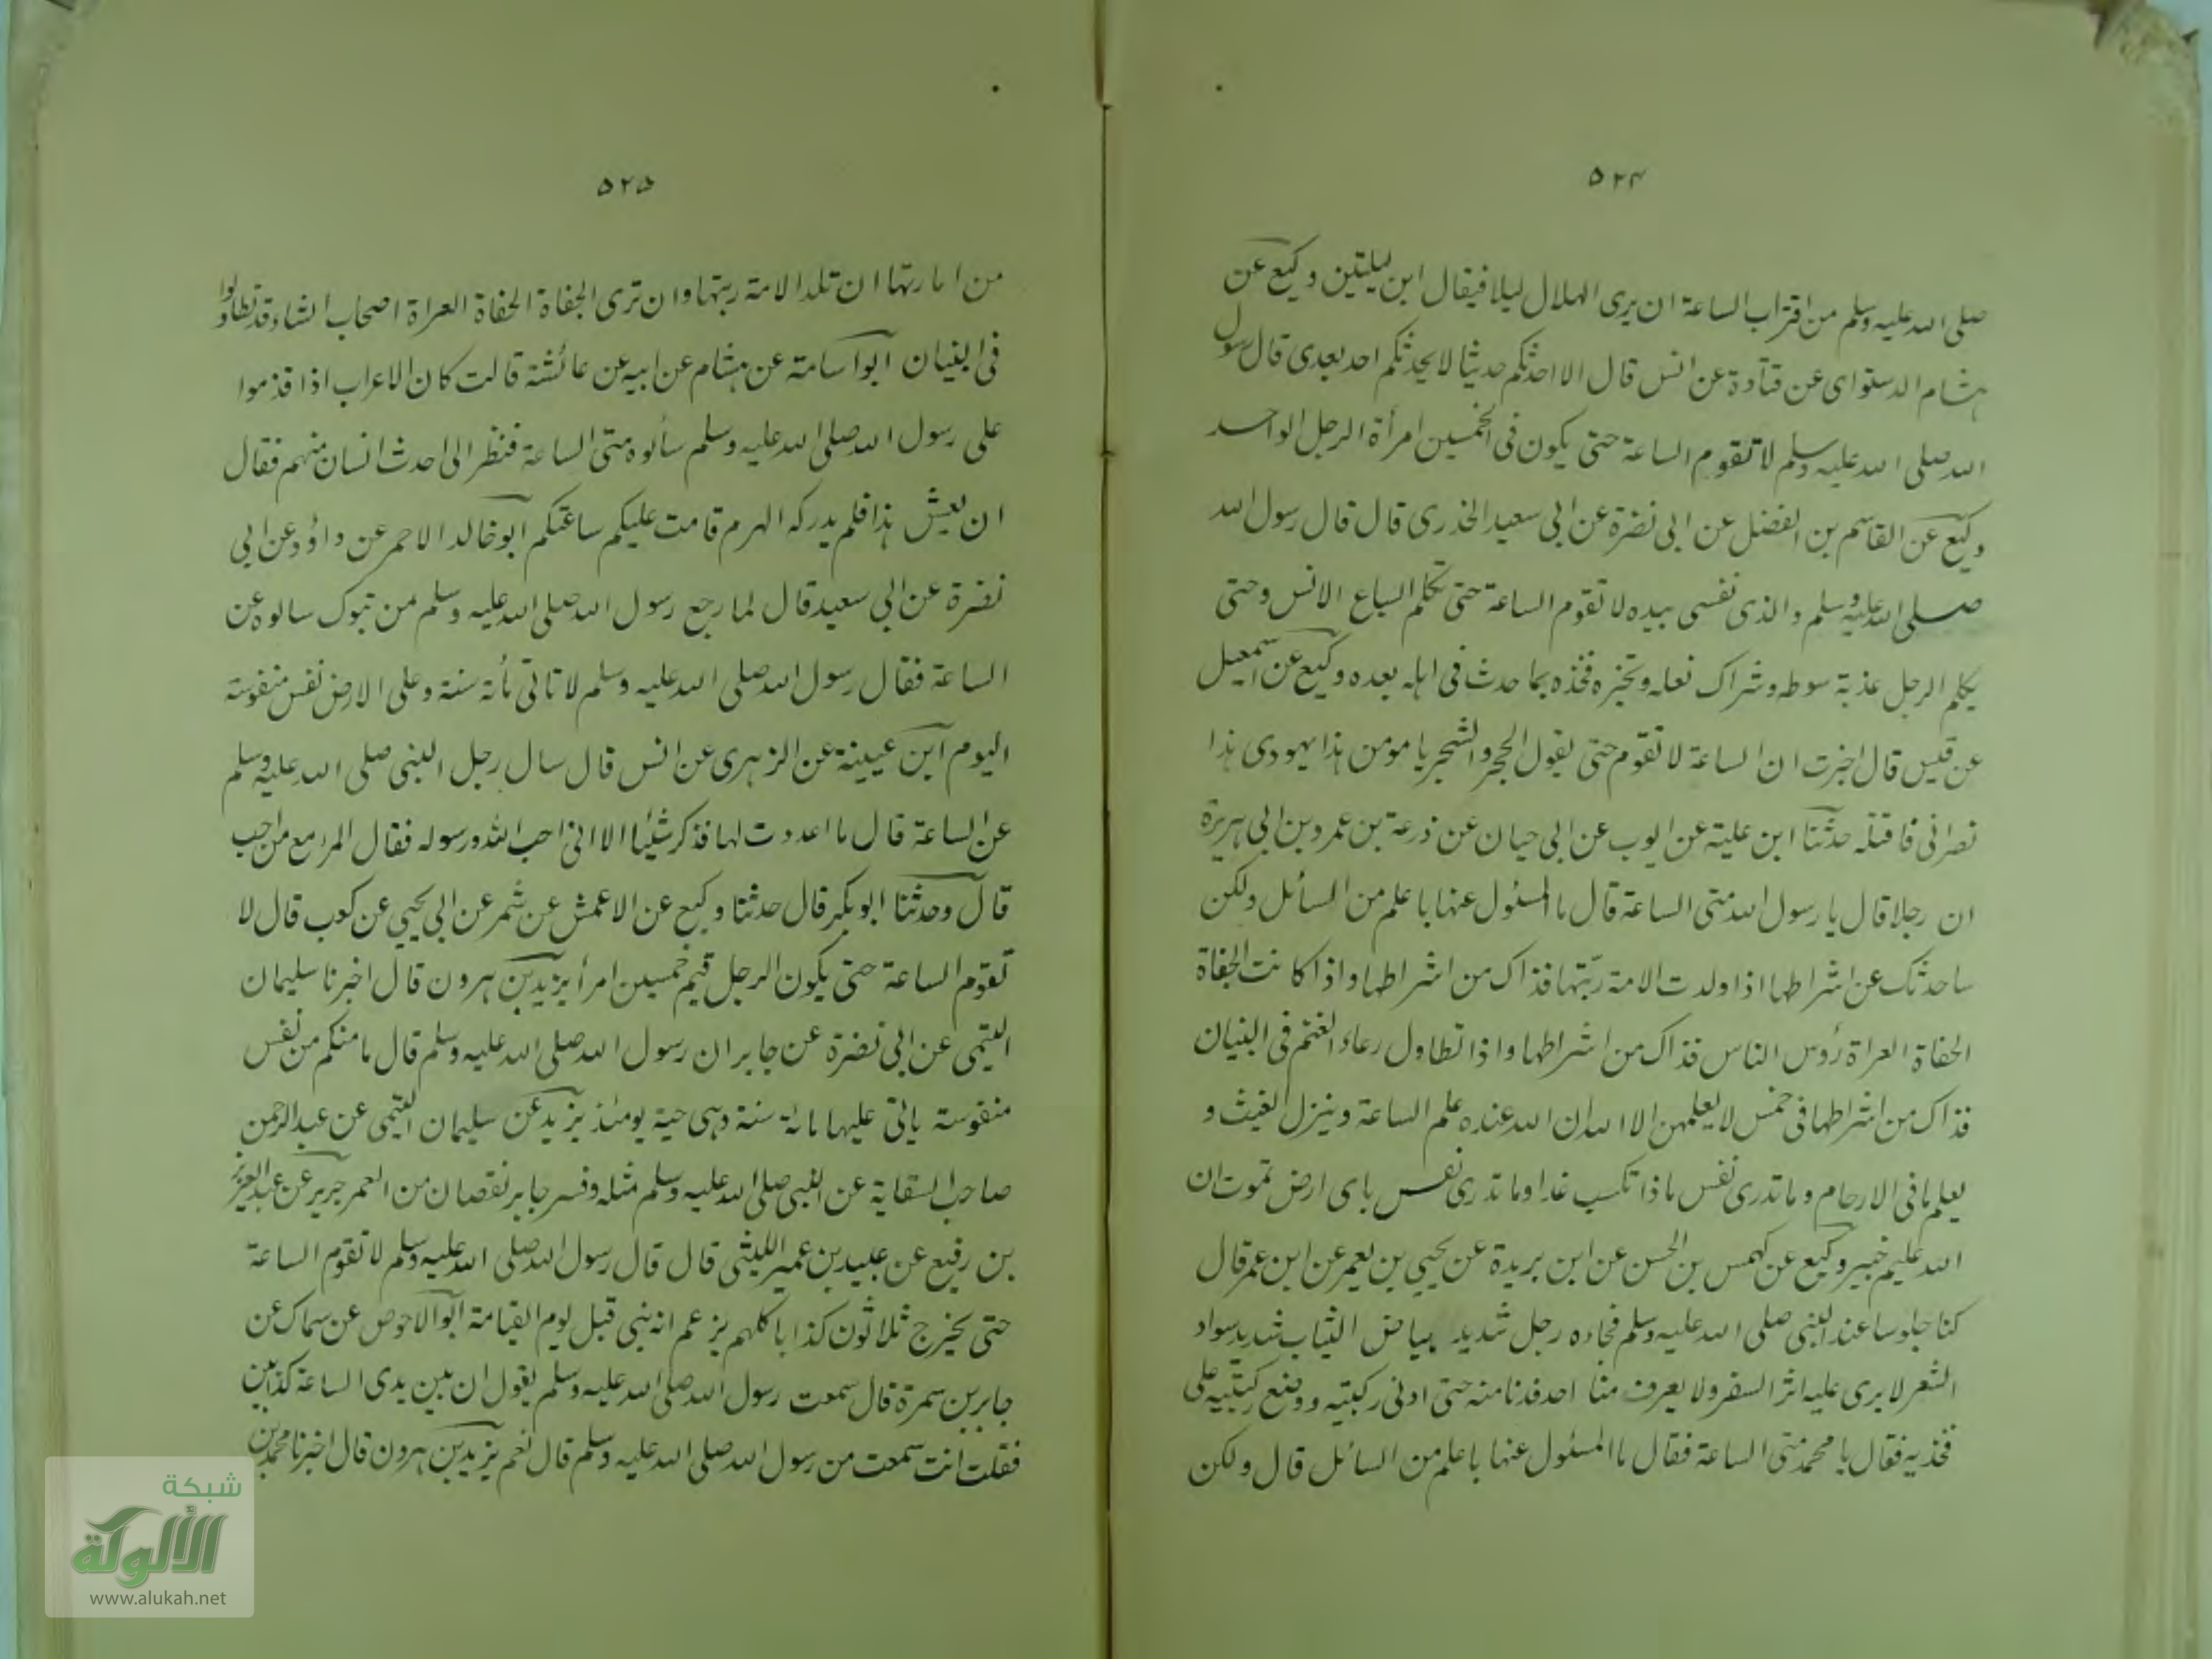 ٥٢٤
صلى الله عليه وسلم من اقتراب الساعة ان يرى الهلال ليلا فيقال ابن ليلتين وكيع عن
هشام الدستواى عن قتادة عن انس قال الا احدثكم حديثا لا يحدثكم احد بعدى قال رسول
الله صلى الله عليه وسلم لا تقوم الساعة حتى يكون فى الخمسين امرأة الرجل الواحد
وكيع عن القاسم بن الفضل عن ابى نضرة عن ابى سعيد الخدرى قال قال رسول الله
صلى الله عليه وسلم والذى نفسى بيده لا تقوم الساعة حتى تكلم السباع الانس وحتى
يكلم الرجل عذبة سوطه وشراك نعله وتخبره فخذه بما حدث فى اهله بعده وكيع عن اسمعيل
عن قيس قال اخبرت ان الساعة لا تقوم حتى يقول الحجر والشجر يا مومن هذا يهودى هذا
نصرانى فاقتله حدثنا ابن علية عن ايوب عن ابى حيان عن زرعة بن عمرو بن ابى هريرة
ان رجلا قال يا رسول الله متى الساعة قال ما المسئول عنها باعلم من السائل ولكن
ساحدثك عن اشراطها اذا ولدت الامة ربتها فذاك من اشراطها واذا كانت الجفاة
الحفاة العراة رؤس الناس فذاك من اشراطها واذا تطاول رعاء الغنم فى البنيان
فذاك من اشراطها فى خمس لا يعلمهن الا الله ان الله عنده علم الساعة وينزل الغيث و
يعلم ما فى الارحام وما تدرى نفس ماذا تكسب غدا وما تدرى نفس باى ارض تموت ان
الله عليم خبير وكيع عن كهمس بن الحسن عن ابن بريدة عن يحيى بن يعمر عن ابن عمر قال
كنا جلوسا عند النبى صلى الله عليه وسلم فجاءه رجل شديد بياض الثياب شديد سواد
الشعر لا يرى عليه اثر السفر ولا يعرف منا احد فدنا منه حتى ادنى ركبتيه ووضع ركبتيه على
فخذيه فقال يا محمد متى الساعة فقال ما المسئول عنها باعلم من السائل قال ولكن
٥٢٥
من امارتها ان تلد الامة ربتها وان ترى الجفاة الحفاة العراة اصحاب الشاء قد تطاولوا
فى البنيان ابو اسامة عن هشام عن ابيه عن عائشة قالت كان الاعراب اذا قدموا
على رسول الله صلى الله عليه وسلم سألوه متى الساعة فنظر الى احدث انسان منهم فقال
ان يعش هذا فلم يدركه الهرم قامت عليكم ساعتكم ابو خالد الاحمر عن داؤد عن ابى
نضرة عن ابى سعيد قال لما رجع رسول الله صلى الله عليه وسلم من تبوك سالوه عن
الساعة فقال رسول الله صلى الله عليه وسلم لا تاتى مأئة سنة وعلى الارض نفس منفوسة
اليوم ابن عيينة عن الزهرى عن انس قال سال رجل النبى صلى الله عليه وسلم
عن الساعة قال ما اعددت لها فذكر شيئا الا انى احب الله ورسوله فقال المرء مع من احب
قال وحدثنا ابو بكر قال حدثنا وكيع عن الاعمش عن شمر عن ابى يحيى عن كعب قال لا
تقوم الساعة حتى يكون الرجل قيم خمسين امرأ يزيد بن هرون قال اخبرنا سليمان
التيمى عن ابى نضرة عن جابر ان رسول الله صلى الله عليه وسلم قال ما منكم من نفس
منفوسة ياتى عليها مائة سنة وهى حية يومئذ يزيد عن سليمان التيمى عن عبد الرحمن
صاحب السقاية عن النبى صلى الله عليه وسلم مثله وفسر جابر نقصان من العمر جرير عن عبد العزيز
بن رفيع عن عبيد بن عمير الليثى قال قال رسول الله صلى الله عليه وسلم لا تقوم الساعة
حتى يخرج ثلاثون كذابا كلهم يزعم انه نبى قبل يوم القيامة ابو الاحوص عن سماك عن
جابر بن سمرة قال سمعت رسول الله صلى الله عليه وسلم يقول ان بين يدى الساعة كذابين
فقلت انت سمعت من رسول الله صلى الله عليه وسلم قال نعم يزيد بن هرون قال اخبرنا محمد بن
شبكة
الألوكة
www.alukah.net